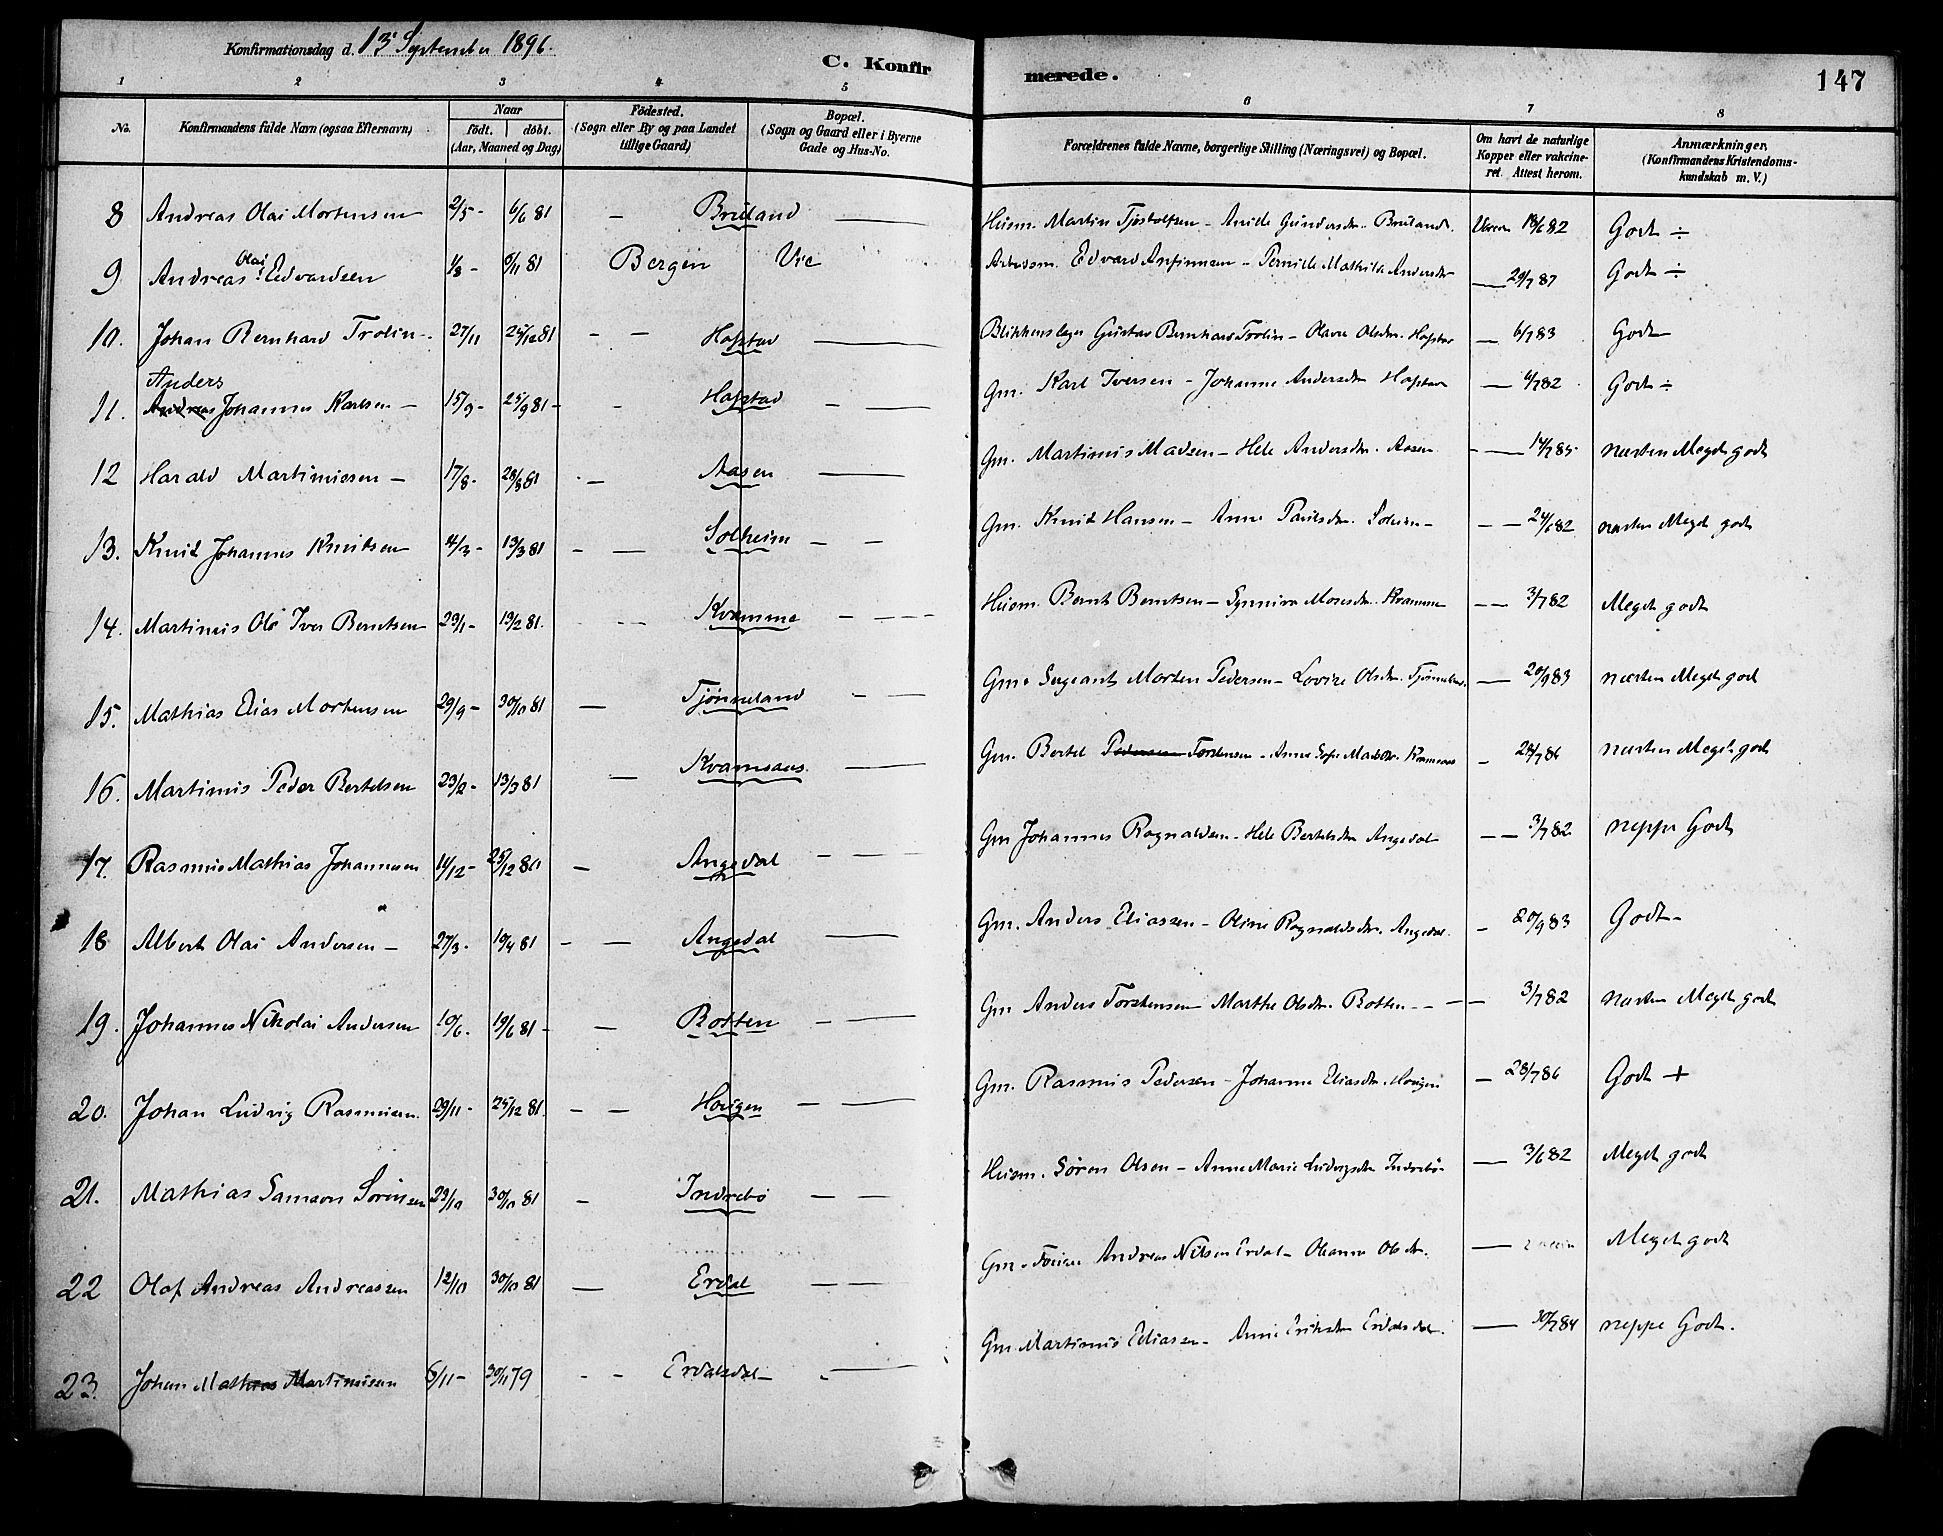 Konfirmationsdag d. 13 September 1896.
C. Konfirmerede.
147
1 2 3 4 5 6 7 8
No. Konfirmandens fulde Navn (ogsaa Efternavn) Naar födt. döbt. (Aar, Maaned og Dag) Födested. (Sogn eller By og paa Landet tillige Gaard) Bopæl. (Sogn og Gaard eller i Byerne Gade og Hus-No. Forældrenes fulde Navne, borgerlige Stilling (Næringsvei) og Bopæl. Om havt de naturlige Kopper eller vakcineret. Attest herom. Anmærkninger. (Konfirmandens Kristendomskundskab m. V.)
8 Andreas Olai Mortensen 2/5 - 6/6 81 - Bruland — Husm. Martin Tjostolfsen - Anille Gundersdtr. Bruland. 18/6 82 Godt ÷
9 Andreas Olai Edvardsen 1/8 - 6/11 81 Bergen Vie Arbeidsm. Edvard Anfinnsen - Pernille Mathilde Andersdtr — 29/7 87 Godt ÷
10. Johan Bernhard Trolin - 27/11 25/12 81 - — Hafstad — Blikkenslager Gustav Bernhard Trolin - Olava Olsdtr. Hafstad — 6/7 83 Godt
11. Anders Andreas Johannes Karlsen - 15/9 - 25/9 81 - - Hafstad - — Gm. Karl Iversen - Johanne Andersdtr Hafstad — 4/7 82 Godt ÷
12 Harald Martinussen - 17/8 - 28/8 81 - Aasen — Gm. Martinus Madsen - Hele Andersdtr. Aasen - — 14/7 85 næsten Meget godt
13. Knud Johannes Knudsen 4/3 - 13/3 81 - — Solheim — - Gm. Knud Hansen - Anne Paulsdtr. Solheim - - — 24/6 82 næsten Meget godt
14. Martinus Ole Iver Berntsen 29/1 - 13/2 81. - - - Kvamme - - — Husm. Bernt Berntsen - Synniva Mosesdtr. Kvamme - — 3/7 82 Meget godt
15. Mathias Elias Mortensen 29/9 - 30/10 81 — Tjönneland - — Gm. Sergeant Morten Pedersen - Lovise Olsdtr. Tjönneland. — 20/9 83 næsten Meget godt
16. Martinus Peder Bertelsen 23/2 - 13/3 81 — Kvamsaas. — Gm. Bertel Pedersen Torstensen - Anne Sofie Madsdtr. Kvamsaas - 28/7 86 næsten Meget godt
17. Rasmus Mathias Johannesen 11/12 - 25/12 80 - Angedal - — Gm Johannes Ragnaldsen - Hele Bertelsdtr Angedal — 3/7 82 neppe Godt
18 Albert Olai Andersen - 27/3 - 10/4 81 - — Angedal — Gm. Anders Eliassen - Oline Ragnaldsdtr. Angedal. - 20/9 83 Godt -
19. Johannes Nikolai Andersen 10/6 - 19/6 81 - — Botten - — Gm Anders Torstensen Marthe Olsdtr. Botten - - — 3/7 82 næsten Meget godt
20. Johan Ludvig Rasmussen. 29/11 - 25/12 81 - — Hovigen — - Gm. Rasmus Pedersen - Johanne Eliasdtr. Hovigen — 28/7 86 Godt +
21. Mathias Samson Sörensen 23/10 30/10 81 - Indrebö — - Husm. Sören Olsen - Anne Marie Ludvigsdtr Indrebö - — 3/6 82 Meget godt
22 Olaf Andreas Andreassen 12/10 30/10 81 — Erdal — - Gm. Andreas Nilsen Erdal - Olsdtr. — Meget godt
23. Johan Mathias Martinussen 6/11 - 30/11 79 - - Erdalsdal - - — Gm Martinus Eliassen - Anne Eriksdtr Erdalsdal. — 30/7 84 neppe Godt.